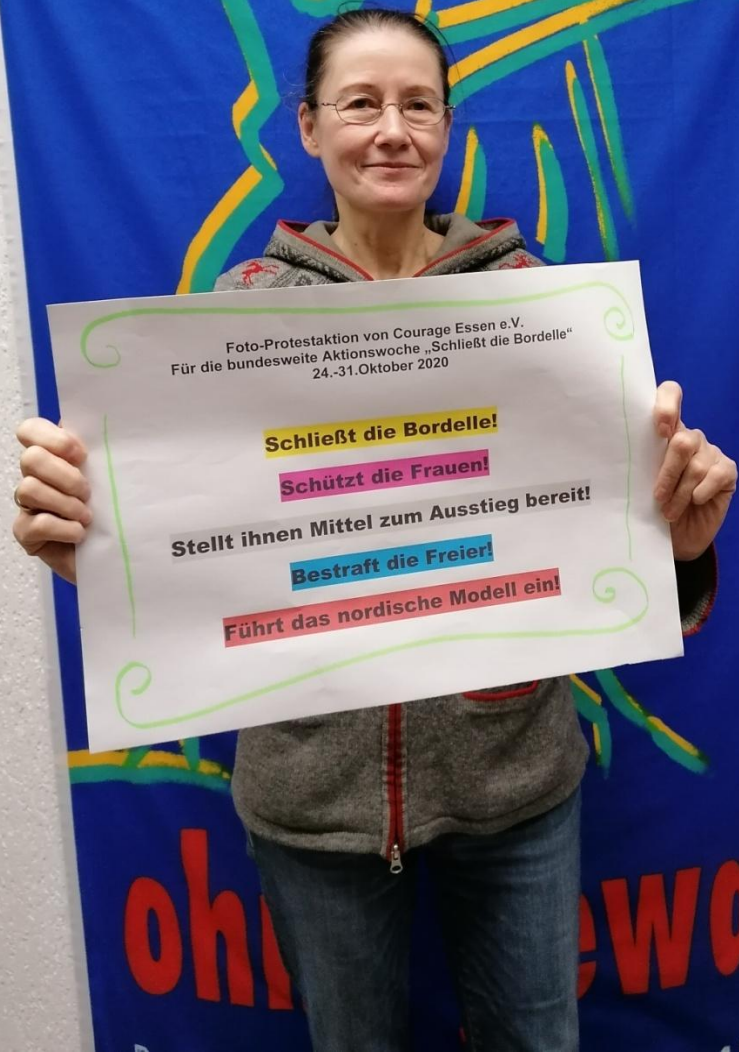 Foto-Protestaktion von Courage Essen e.V.
Für die bundesweite Aktionswoche „Schließt die Bordelle“
24.-31.Oktober 2020
Schließt die Bordelle!
Schützt die Frauen!
Stellt ihnen Mittel zum Ausstieg bereit!
Bestraft die Freier!
Führt das nordische Modell ein!